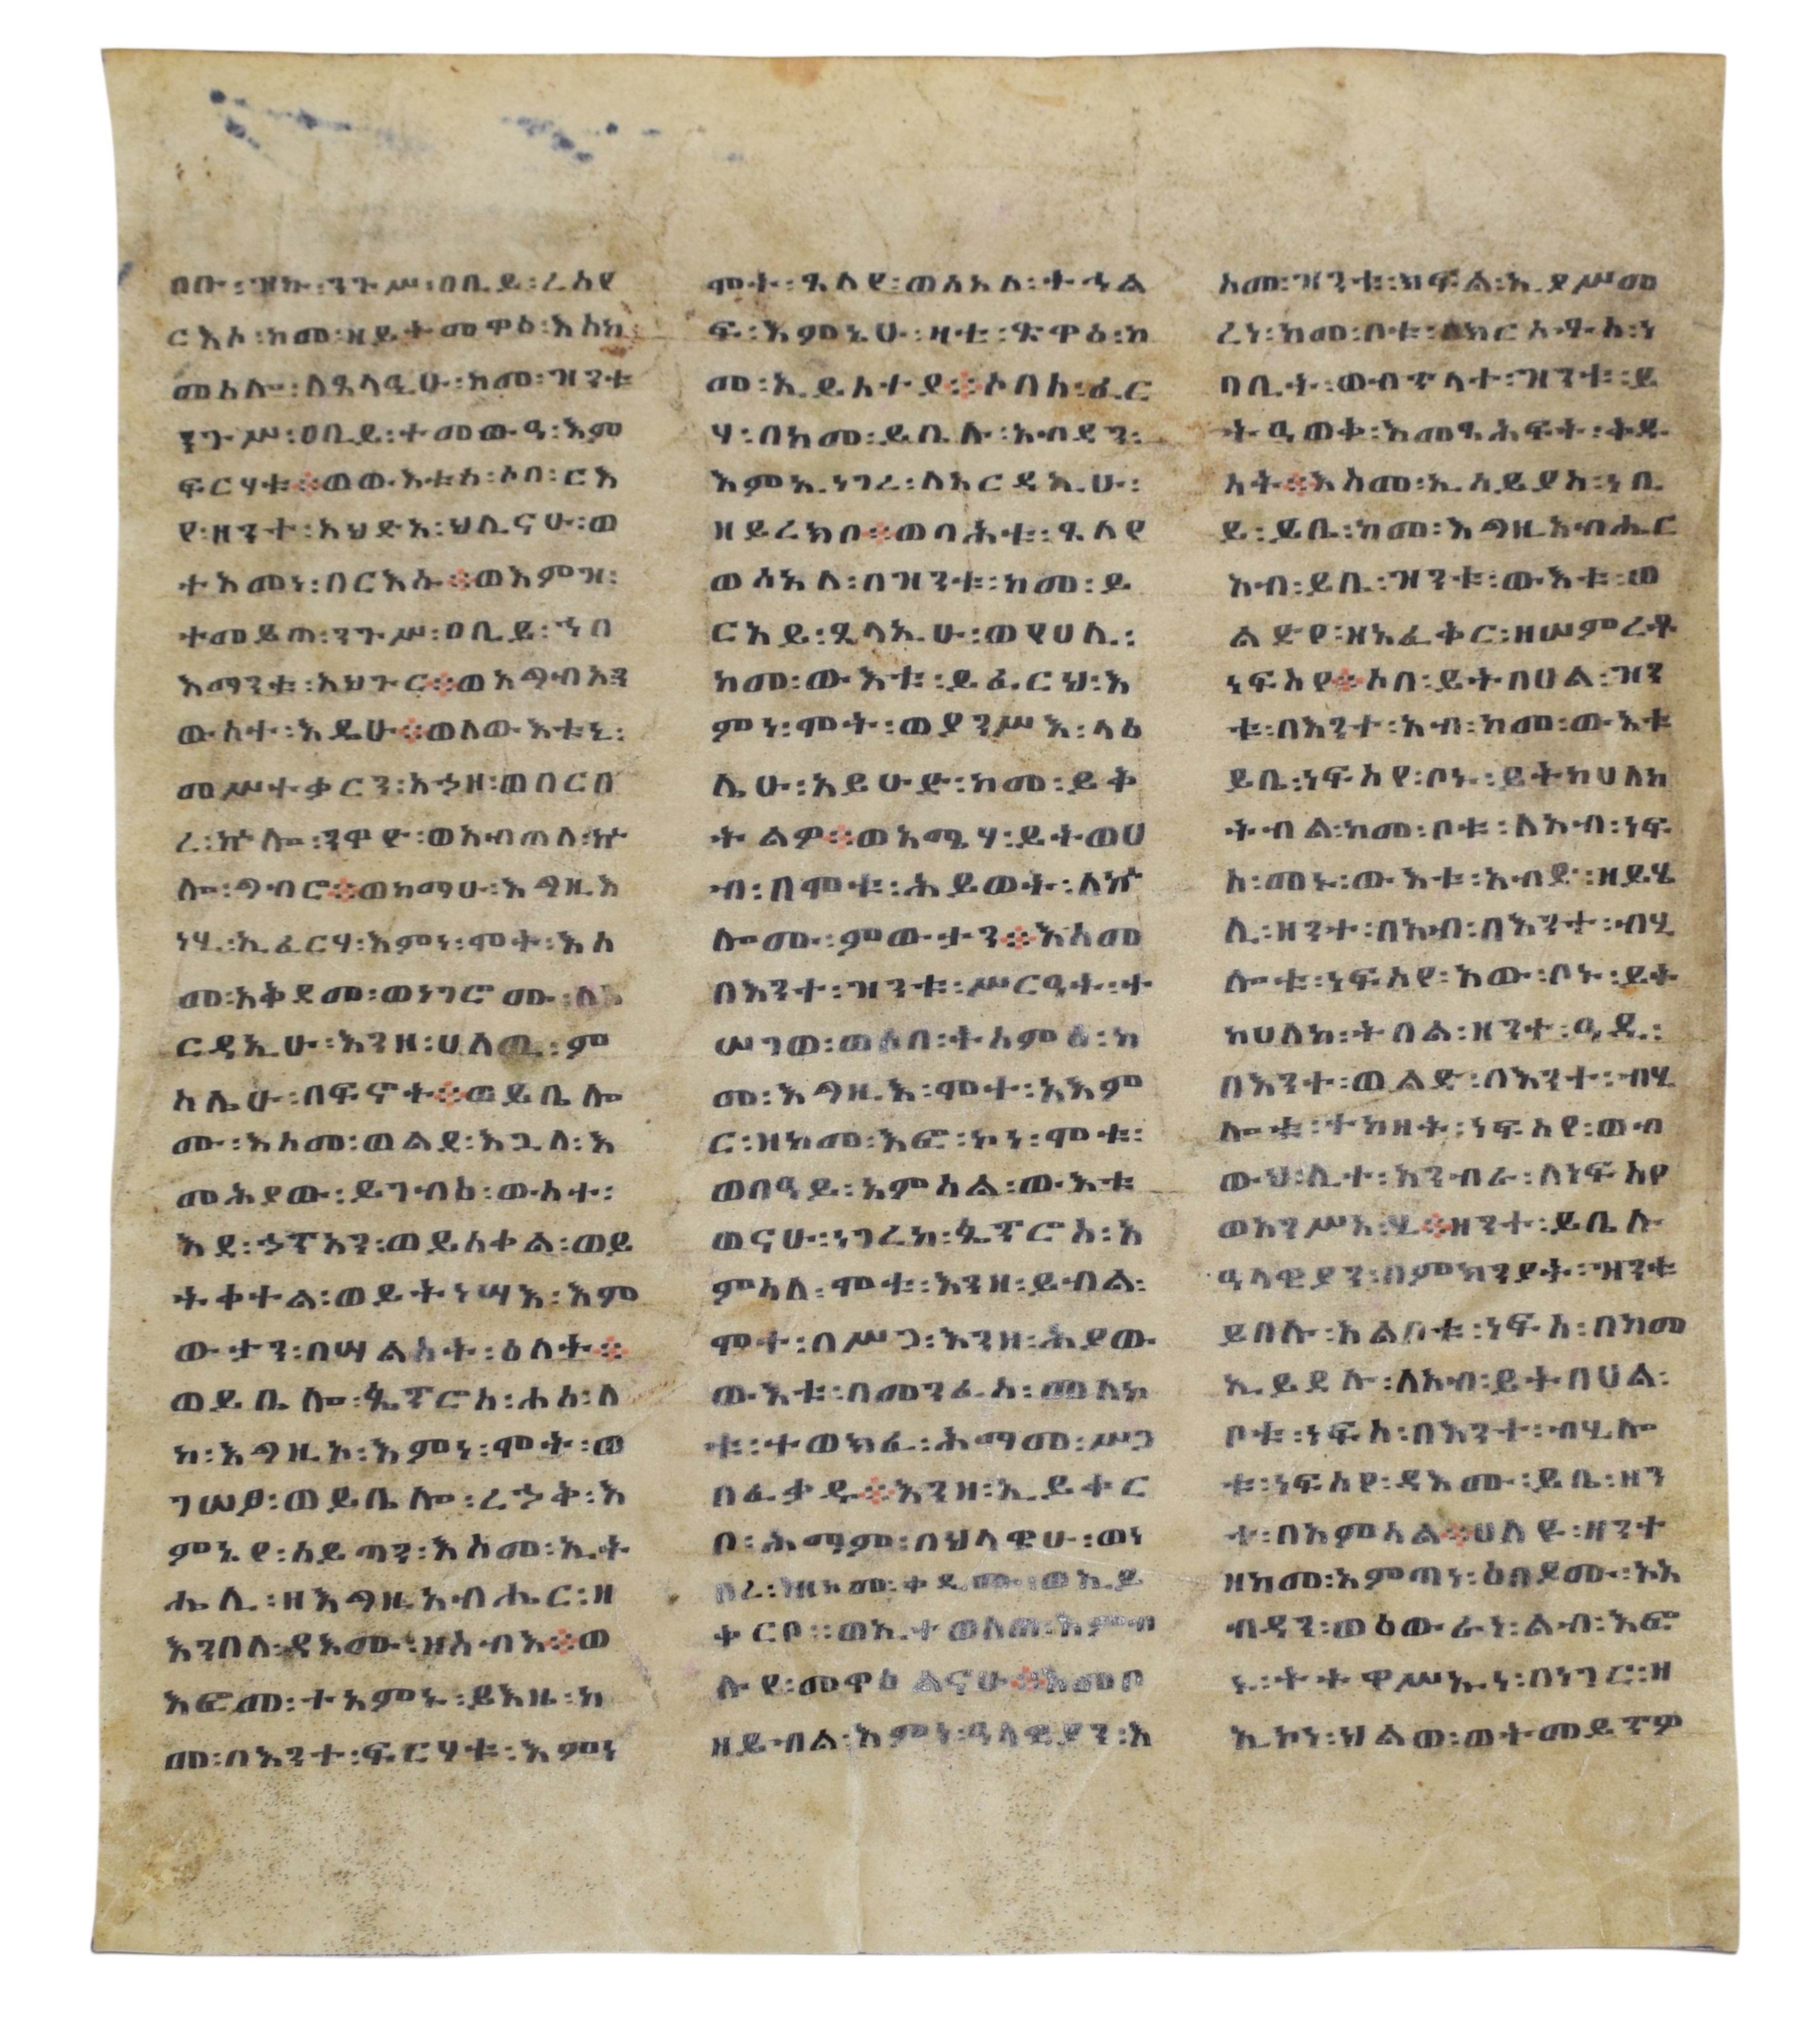 በቡ፡ዝኩ፡ንጉሥ፡ዐቢይ፡ረአየ
ርእሶ፡ከመ፡ዘይትመዋዕ፡እስከ፡
መሰሎ፡ለጸላዒሁ፡ከመ፡ዝንቱ
ንጉሥ፡ዐቢይ፡ተመውዓ፡እም
ፍርሃቱ።ወውእቱሰ፡ሶበ፡ርእ
የ፡ዘንተ፡አህድአ፡ህሊናሁ፡ወ
ተአመነ፡በርእሱ።ወእምዝ፡
ተመይጠ፡ንጉሥ፡ዐቢይ፡ኀበ
እማንቱ፡አህጉር።ወአግብአን
ውስተ፡እዴሁ።ወለውእቱኒ፡
መሥተቃርን፡አኀዘ፡ወበርበ
ረ፡ኵሎ፡ንዋዮ፡ወአብጠለ፡ኵ
ሎ፡ግብሮ።ወከማሁ፡እግዚእ
ነሂ፡ኢፈርሃ፡እምነ፡ሞት፡እስ
መ፡አቅደመ፡ወነገሮሙ፡ለአ
ርዳኢሁ፡እንዘ፡ሀለዊ፡ም
ስሌሁ፡በፍኖት።ወይቤሎ
ሙ፡እስመ፡ወልደ፡እጓለ፡እ
መሕያው፡ይገብእ፡ውስተ፡
እደ፡ኃጥአን፡ወይሰቀል፡ወይ
ትቀተል፡ወይትነሣእ፡እም
ውታን፡በሣልስት፡ዕለት።
ወይቤሎ፡ጴጥሮስ፡ሐሰ፡ለ
ከ፡እግዚኦ፡እምነ፡ሞት፡ወ
ገሠፆ፡ወይቤሎ፡ረኀቅ፡እ
ምኔየ፡ሰይጣን፡እስመ፡ኢት
ሔሊ፡ዘእግዚአብሔር፡ዘ
እንበለ፡ዳእሙ፡ዘሰብእ።ወ
እፎመ፡ተአምኑ፡ይእዜ፡ከ
መ፡በእንተ፡ፍርሃቱ፡እምነ
ሞት፡ጸለየ፡ወሰአለ፡ትኅል
ፍ፡እምኔሁ፡ዛቲ፡ጽዋዕ፡ከ
መ፡ኢይስተያ።ሶበሰ፡ፈር
ሃ፡በከመ፡ይቤሉ፡አብዳን፡
እምኢነገረ፡ለአርዳኢሁ፡
ዘይረክቦ።ወባሕቱ፡ጸለየ
ወሰአለ፡በዝንቱ፡ከመ፡ይ
ርአይ፡ጸላኢሁ፡ወየሀሊ፡
ከመ፡ውእቱ፡ይፈርህ፡እ
ምነ፡ሞት፡ወያንሥእ፡ላዕ
ሌሁ፡አይሁድ፡ከመ፡ይቅ
ትልዎ።ወአሜሃ፡ይትወሀ
ብ፡በሞቱ፡ሕይወት፡ለኵ
ሎሙ፡ምውታን።እስመ
በእንተ፡ዝንቱ፡ሥርዓት፡ተ
ሠገወ፡ወሶበ፡ትሰምዕ፡ከ
መ፡እግዚእ፡ሞተ፡አእም
ር፡ዘከመ፡እፎ፡ኮነ፡ሞቱ፡
ወበዓይ፡አምሳል፡ውእቱ
ወናሁ፡ነገረከ፡ጴጥሮስ፡አ
ምሳለ፡ሞቱ፡እንዘ፡ይብል፡
ሞተ፡በሥጋ፡እንዘ፡ሕያው
ውእቱ፡በመንፈስ፡መለኮ
ቱ፡ተወክፈ፡ሕማመ፡ሥጋ
በፈቃዱ።እንዘ፡ኢይቀር
ቦ፡ሕማም፡በህላዌሁ፡ወነ
በረ፡ዝከመ፡ቀዲሙ፡ወኢይ
ቀርቦ።ወኢተወለጠ፡እምብ
ሉየ፡መዋዕልናሁ።እመቦ
ዘይብል፡እምነ፡ዓላዊያን፡እ
ስመ፡ዝንቱ፡ክፍል፡ኢያሥመ
ረነ፡ከመ፡ቦቱ፡ለክርስቶስ፡ነ
ባቢት፡ወብጥላተ፡ዝንቱ፡ይ
ትዓወቅ፡እመጻሕፍት፡ቅዱ
ሳት።እስመ፡ኢሳይያስ፡ነቢ
ይ፡ይቤ፡ከመ፡እግዚአብሔር
አብ፡ይቤ፡ዝንቱ፡ውእቱ፡ወ
ልድየ፡ዘአፈቅር፡ዘሠምረቶ
ነፍስየ።ሶበ፡ይትበሀል፡ዝን
ቱ፡በእንተ፡አብ፡ከመ፡ውእቱ
ይቤ፡ነፍስየ፡ቦኑ፡ይትከሀለከ
ትብል፡ከመ፡ቦቱ፡ለአብ፡ነፍ
ስ፡መኑ፡ውእቱ፡አብድ፡ዘይሄ
ሊ፡ዘንተ፡በአብ፡በእንተ፡ብሂ
ሎቱ፡ነፍስየ፡አው፡ቦኑ፡ይት
ከሀለከ፡ትበል፡ዘንተ፡ዓዲ፡
በእንተ፡ወልድ፡በእንተ፡ብሂ
ሎቱ፡ተከዘት፡ነፍስየ፡ወብ
ውህ፡ሊተ፡አንብራ፡ለነፍስየ
ወአንሥአ፡ሂ።ዘንተ፡ይቤሉ
ዓላዊያን፡በምክንያት፡ዝንቱ
ይበሉ፡አልቦቱ፡ነፍስ፡በከመ
ኢይደሉ፡ለአብ፡ይትበሀል፡
ቦቱ፡ነፍስ፡በእንተ፡ብሂሎ
ቱ፡ነፍስየ፡ዳእሙ፡ይቤ፡ዘን
ተ፡በአምሳል።ሀለዩ፡ዘንተ
ዘከመ፡አምጣነ፡ዕበደሙ፡አእ
ብዳን፡ወዕውራነ፡ልብ፡እፎ
ኑ፡ተትዋሥኡነ፡በነገር፡ዘ
ኢኮነ፡ህልወ፡ወትመይጥዎ